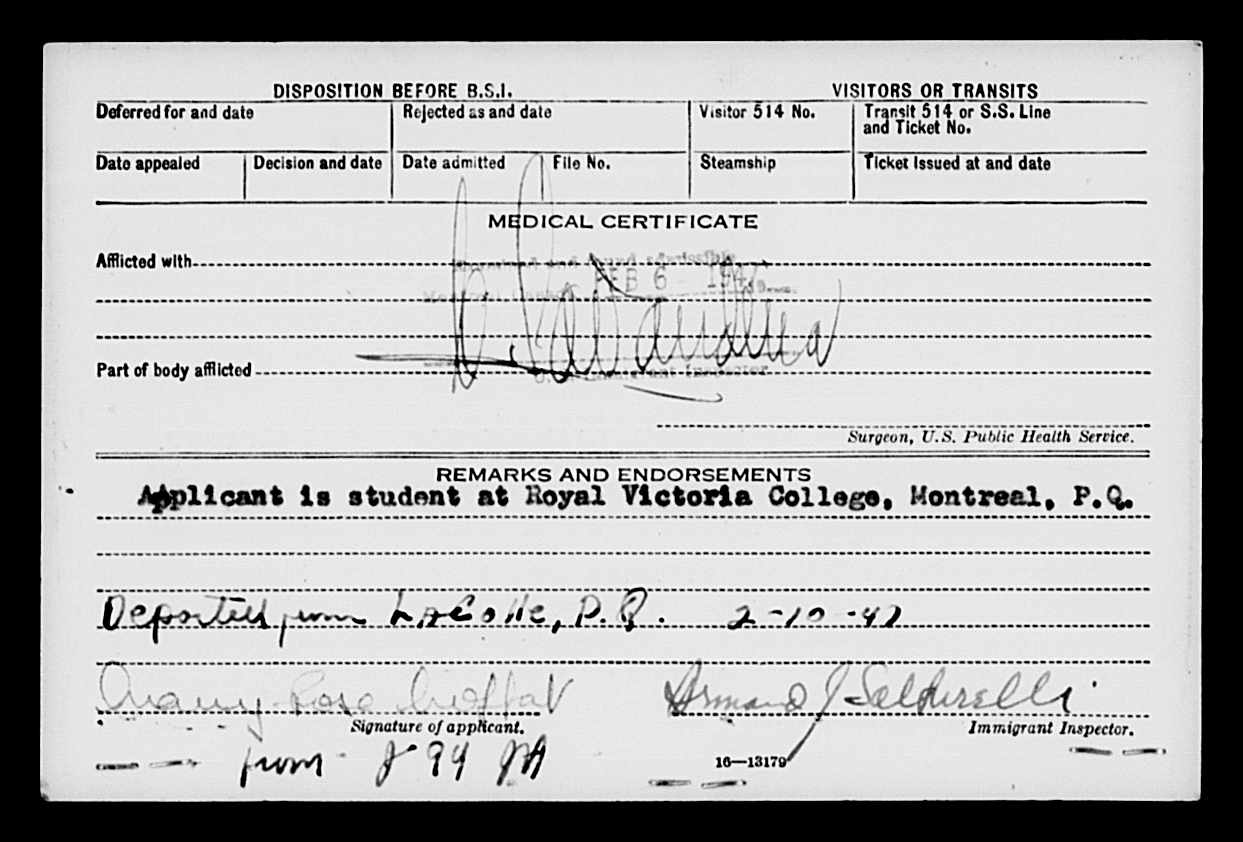 DISPOSITION BEFORE B.S.I. VISITORS OR TRANSITS
Deferred for and date Rejected as and date Visitor 514 No. Transit 514 or S.S. Line
and Ticket No.
Date appealed Decision and date Date admitted File No. Steamship Ticket issued at and date
MEDICAL CERTIFICATE
Afflicted with
FEB 6
Part of body afflicted
Immigrant Inspector
Surgeon, U.S. Public Health Service.
REMARKS AND ENDORSEMENTS
Applicant is student at Royal Victoria College, Montreal, P.Q.
Deported from LaColle, P.Q. 2-10-47
Nancy Rose Moffat Armand J
Signature of applicant. Immigrant Inspector.
from
16—13179